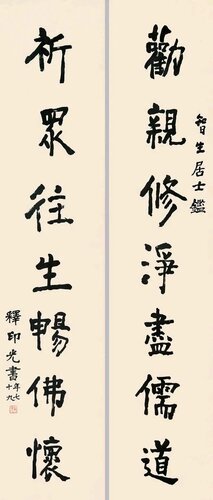 智生居士鑑
勸親修淨盡儒道
祈眾往生暢佛懷
釋印光書年七十九